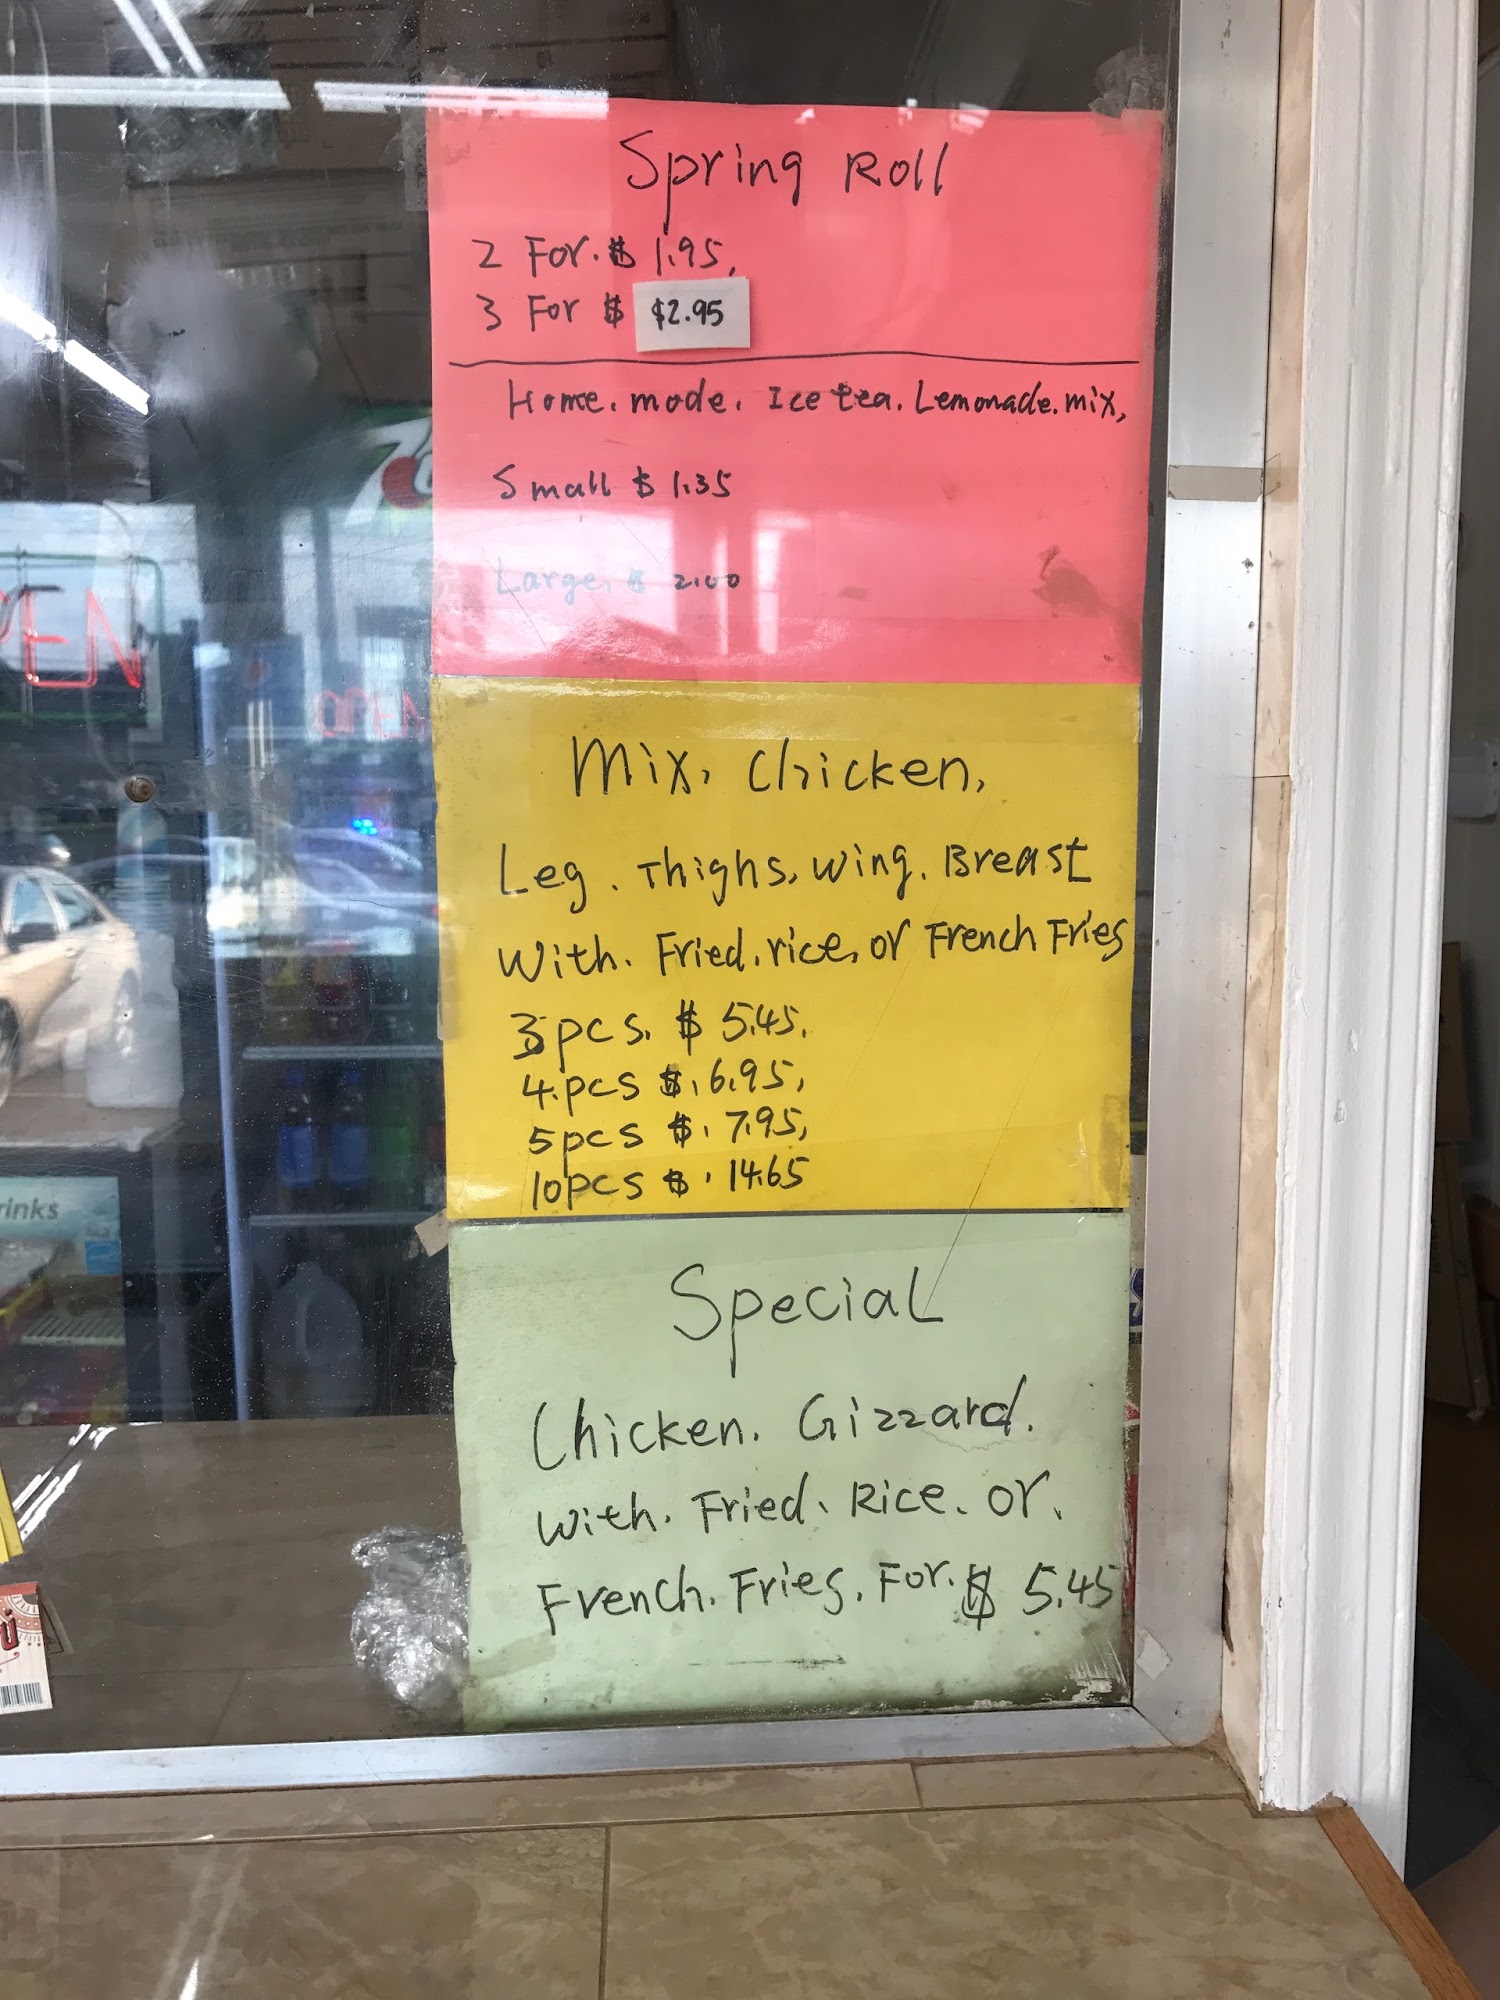 Spring Roll
2 For. $ 1.95,
3 For $ $2.95
Home. made. Ice tea. Lemonade. mix,
Small $ 1.35
Large. $ 2.00
Mix, Chicken,
Leg. Thighs, wing. Breast
With. Fried. rice, or French Fries
3 pcs. $ 5.45.
4.pcs $. 6.95,
5 pcs $. 7.95,
10 pcs $. 14.65
Special
Chicken. Gizzard.
With. Fried. Rice. or.
French. Fries. For. $ 5.45
PEN
OPEN
rinks